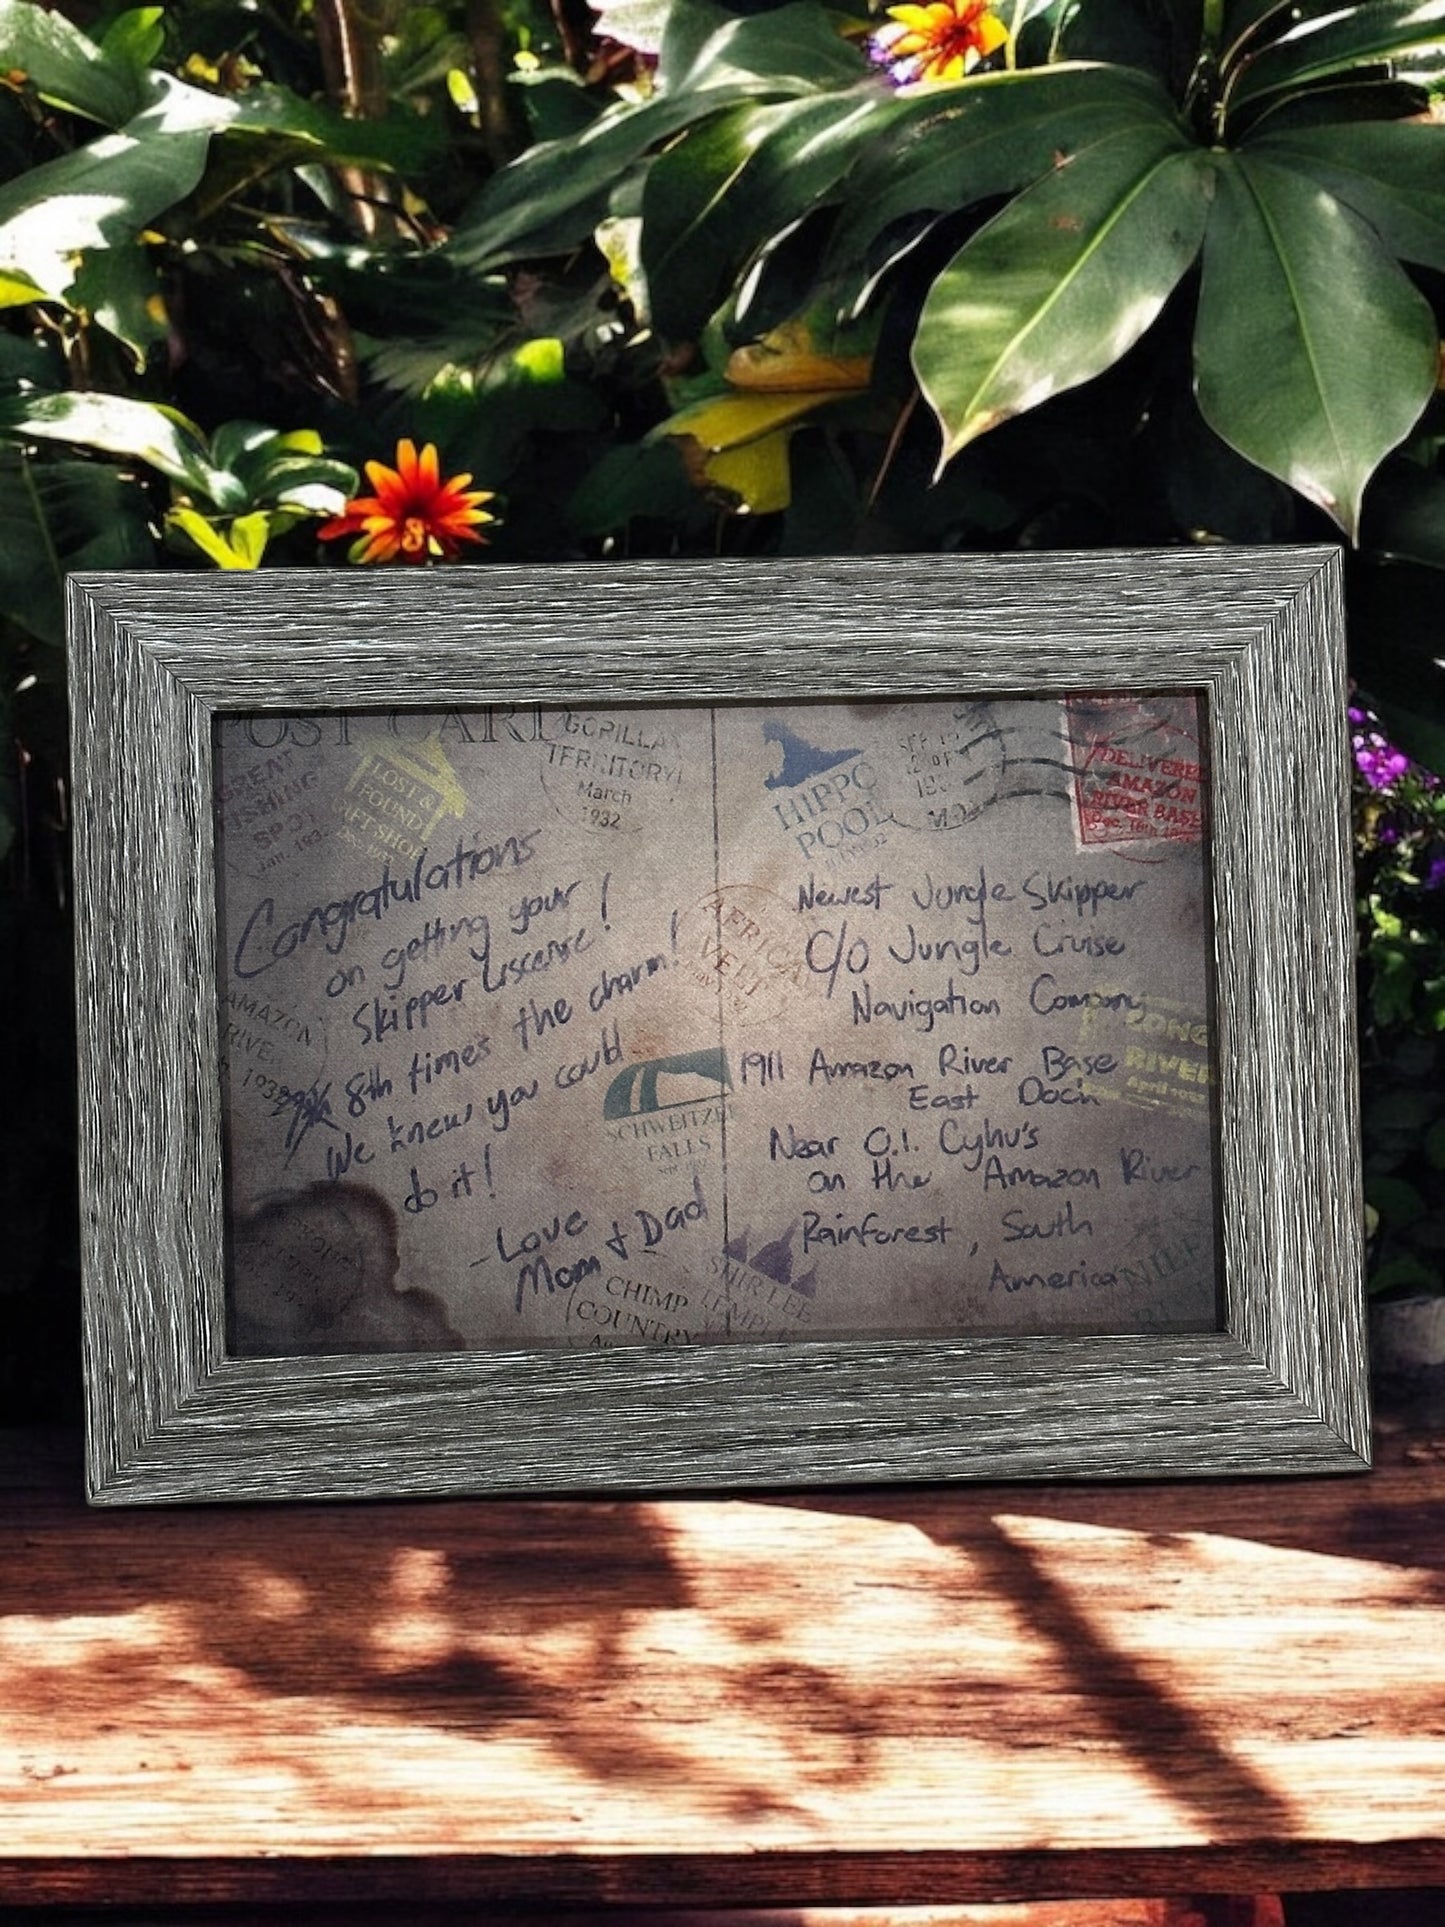 POST CARD
GREAT
FISHING
SPOT
Jan. 193
LOST &
FOUND
GIFT SHOP
GORILLA
TERRITORY!
March
1932
Congratulations
on getting your
Skipper Liscense!
8th times the charm!
We knew you could
do it!
- Love
Mom & Dad
AMAZON
RIVER
1938
AFRICA
VELDT
SCHWEITZER
FALLS
CHIMP
COUNTRY
SHIRLEE
TEMPLE
HIPPO
POOL
DELIVERED
AMAZON
RIVER BASE
Dec. 18th
Newest Jungle Skipper
C/O Jungle Cruise
Navigation Company
1911 Amazon River Base
East Dock
Near O.I. Cyhu's
on the Amazon River
Rainforest, South
America
CONGO
RIVER
April
NILE